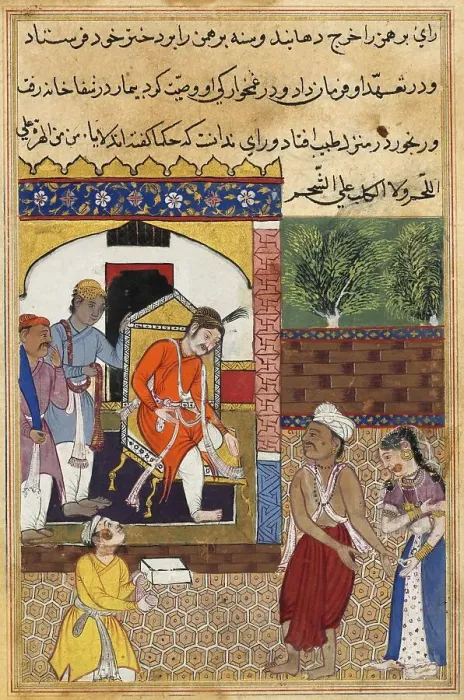 رای برهمن را خرج دهانید و سنه برهمن را بر دختر خود فرستاد
و در تعهّد او فرمان داد و در غمخوارکی او وصیّت کرد بیمار در شفاخانه رفت
و رنجور در منزل طبیب افتاد و رای ندانست که حکما کفته اند لایامن من الهرة علی
اللّحم ولا الکلب علی الشّحم